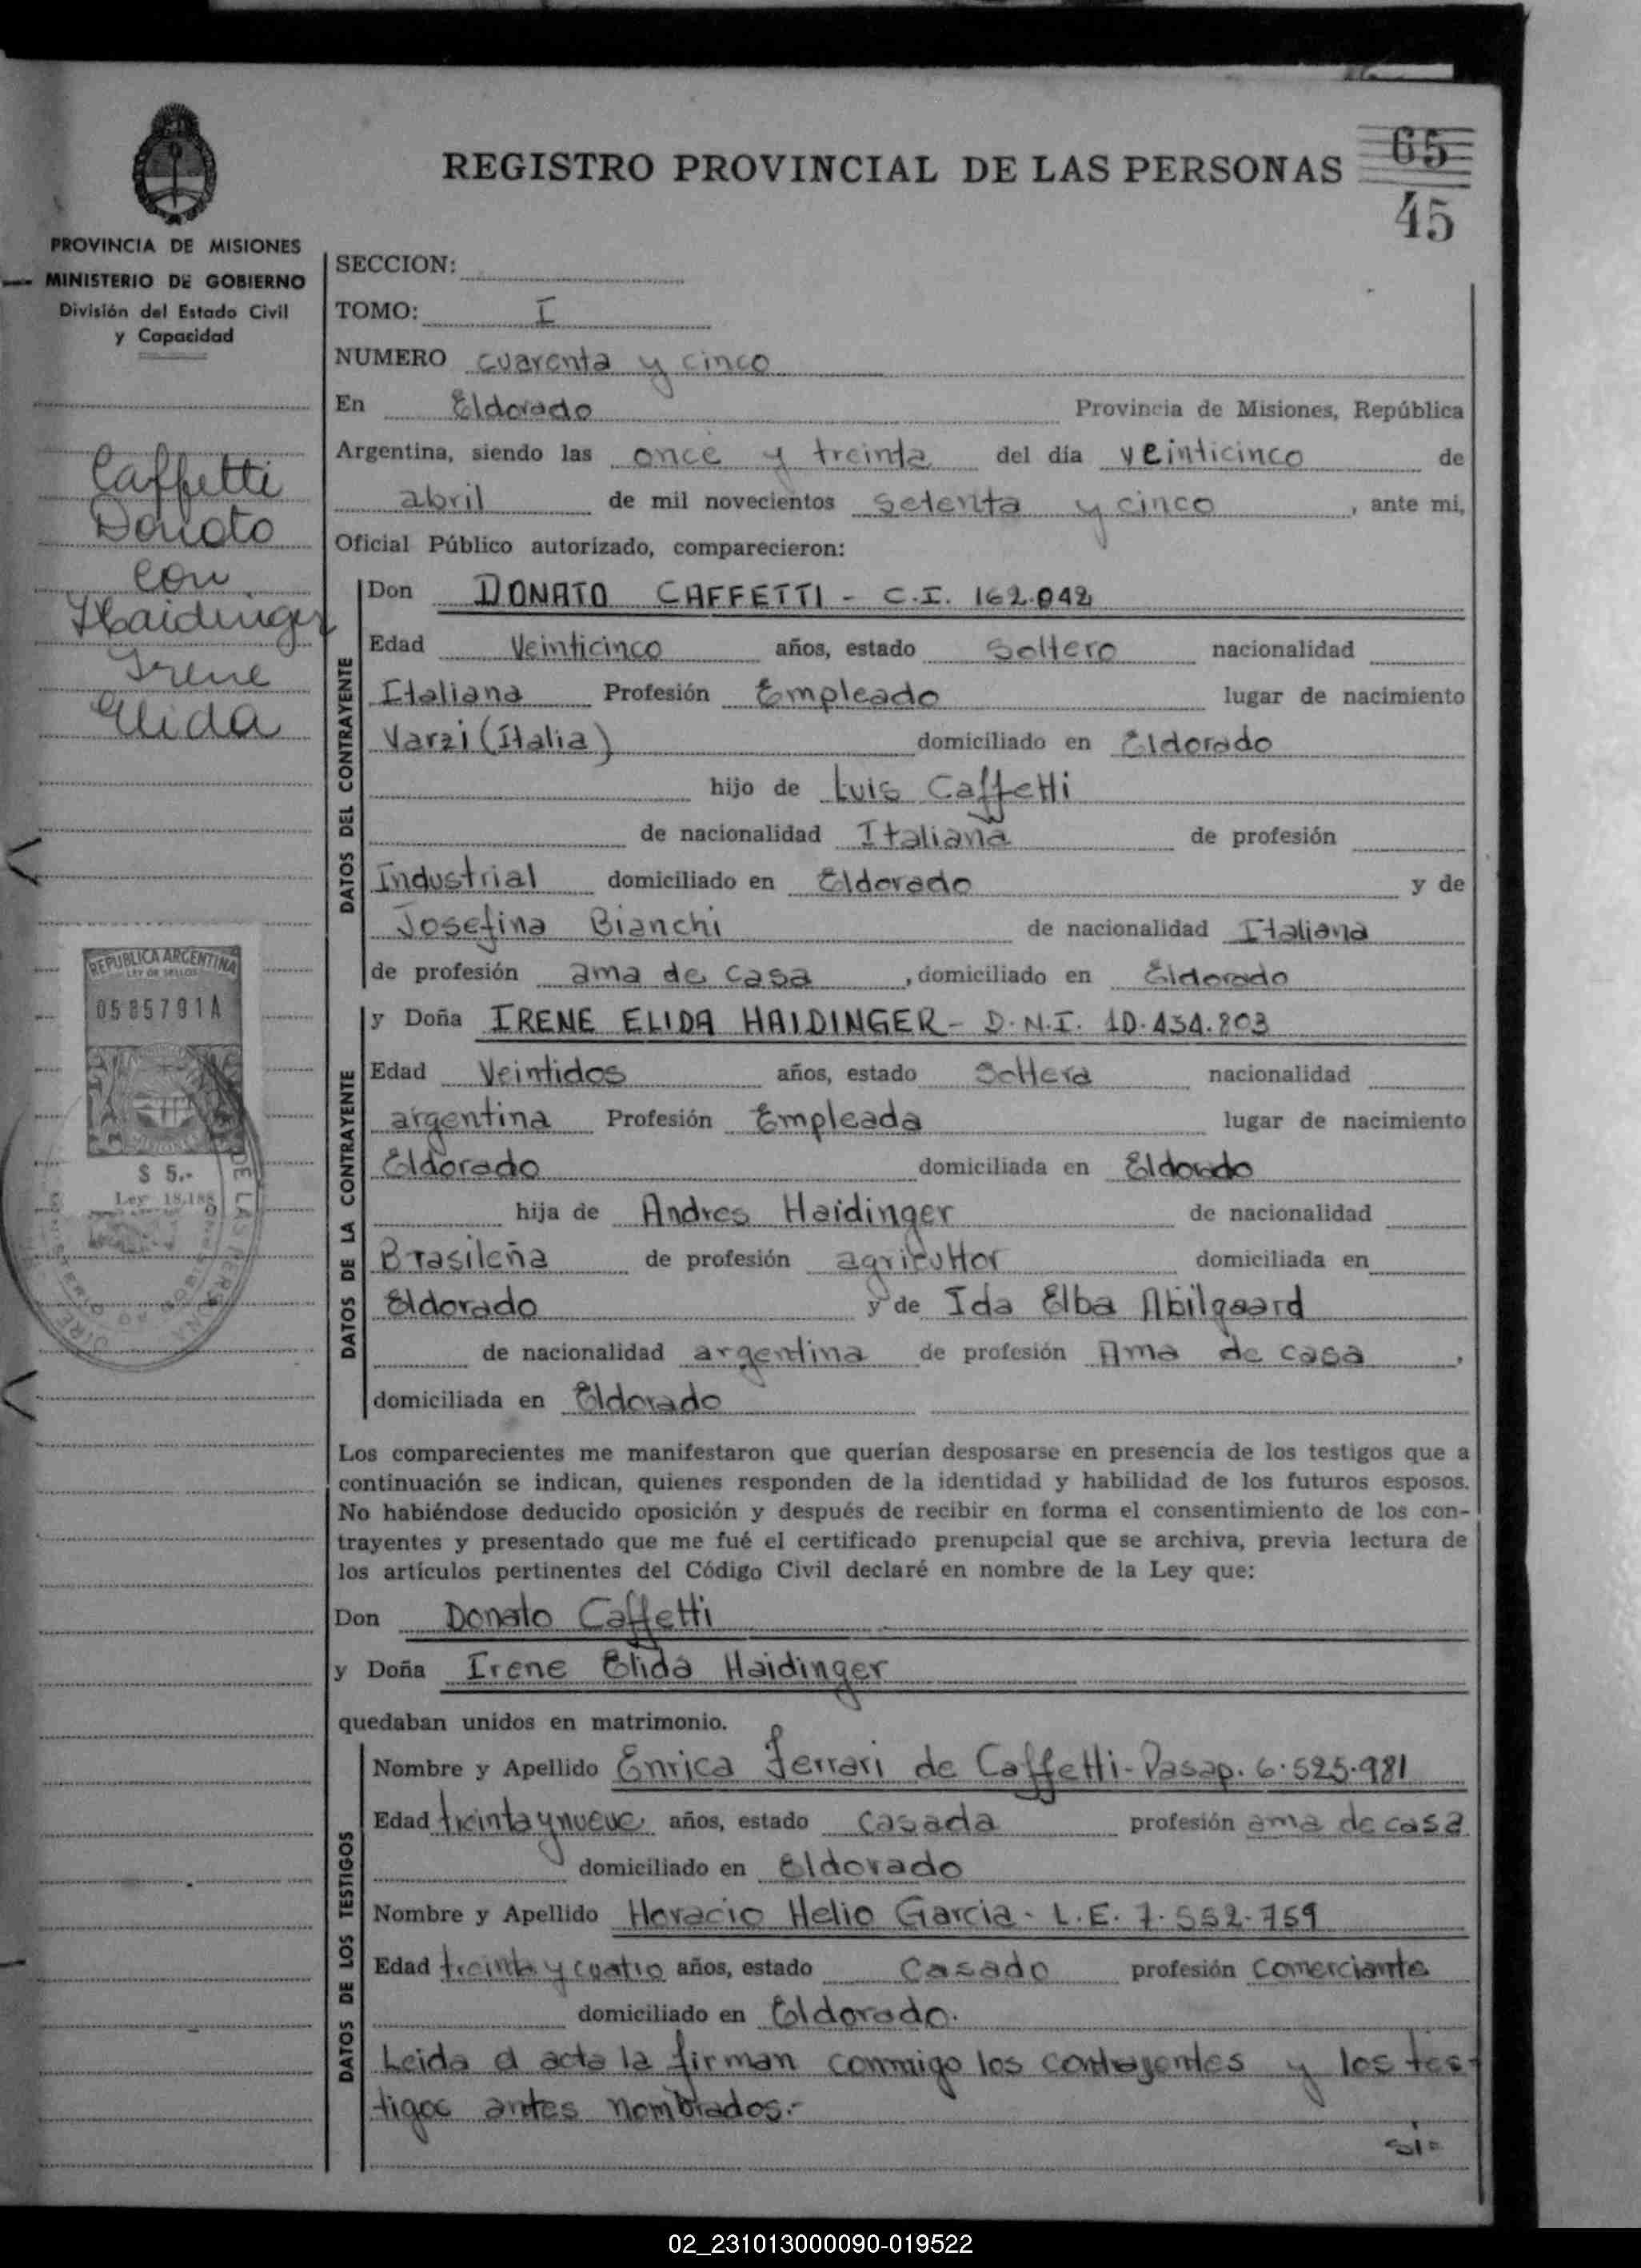 REGISTRO PROVINCIAL DE LAS PERSONAS
65
45
PROVINCIA DE MISIONES
MINISTERIO DE GOBIERNO
División del Estado Civil
y Capacidad
Caffetti
Donato
con
Haidinger
Irene
Elida
REPUBLICA ARGENTINA
LEY DE SELLOS
0585791A
$ 5.-
Ley 18.188
SECCION:
TOMO: I
NUMERO cuarenta y cinco
En Eldorado Provincia de Misiones, República
Argentina, siendo las once y treinta del día veinticinco de
abril de mil novecientos setenta y cinco, ante mi,
Oficial Público autorizado, comparecieron:
DATOS DEL CONTRAYENTE
Don DONATO CAFFETTI - C.I. 162.042
Edad Veinticinco años, estado Soltero nacionalidad
Italiana Profesión Empleado lugar de nacimiento
Varzi (Italia) domiciliado en Eldorado
hijo de Luis Caffetti
de nacionalidad Italiana de profesión
Industrial domiciliado en Eldorado y de
Josefina Bianchi de nacionalidad Italiana
de profesión ama de casa, domiciliado en Eldorado
DATOS DE LA CONTRAYENTE
y Doña IRENE ELIDA HAIDINGER - D.N.I. 10.434.803
Edad Veintidos años, estado Soltera nacionalidad
argentina Profesión Empleada lugar de nacimiento
Eldorado domiciliada en Eldorado
hija de Andres Haidinger de nacionalidad
Brasileña de profesión agricultor domiciliada en
Eldorado y de Ida Elba Abilgaard
de nacionalidad argentina de profesión Ama de casa,
domiciliada en Eldorado
Los comparecientes me manifestaron que querían desposarse en presencia de los testigos que a
continuación se indican, quienes responden de la identidad y habilidad de los futuros esposos.
No habiéndose deducido oposición y después de recibir en forma el consentimiento de los con-
trayentes y presentado que me fué el certificado prenupcial que se archiva, previa lectura de
los artículos pertinentes del Código Civil declaré en nombre de la Ley que:
Don Donato Caffetti
y Doña Irene Elida Haidinger
quedaban unidos en matrimonio.
DATOS DE LOS TESTIGOS
Nombre y Apellido Enrica Ferrari de Caffetti - Pasap. 6.525.981
Edad treinta y nueve años, estado casada profesión ama de casa
domiciliado en Eldorado
Nombre y Apellido Horacio Helio Garcia - L.E. 7.552.759
Edad treinta y cuatro años, estado Casado profesión Comerciante
domiciliado en Eldorado.
Leida el acta la firman conmigo los contrayentes y los tes-
tigos antes nombrados.-
02_231013000090-019522